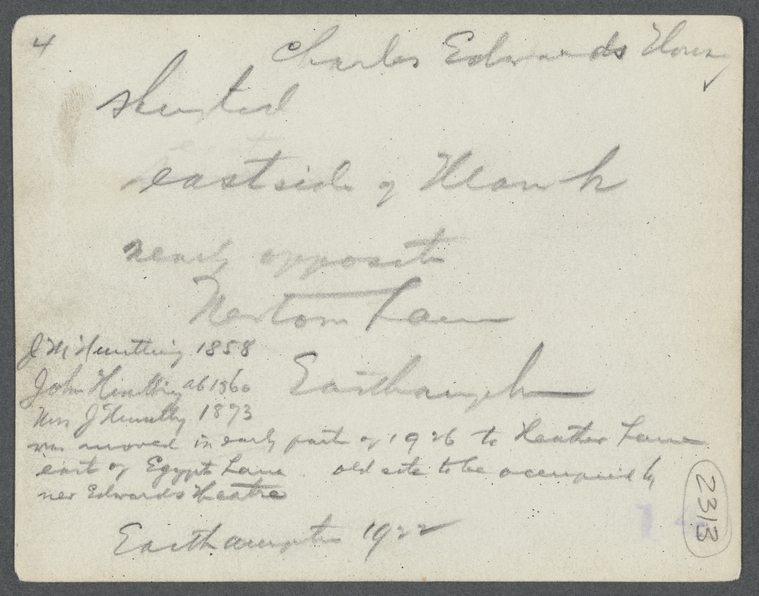 4
Charles Edwards House
east side of
nearly opposite
Newtown Lane
J M Huntting 1858
Easthampton
John Huntting ab 1860
Mrs J Huntting 1873
was moved in early part of 1926 to Heather Lane
east of Egypt Lane old site to be occupied by
new Edwards theatre
Easthampton 1922
2313